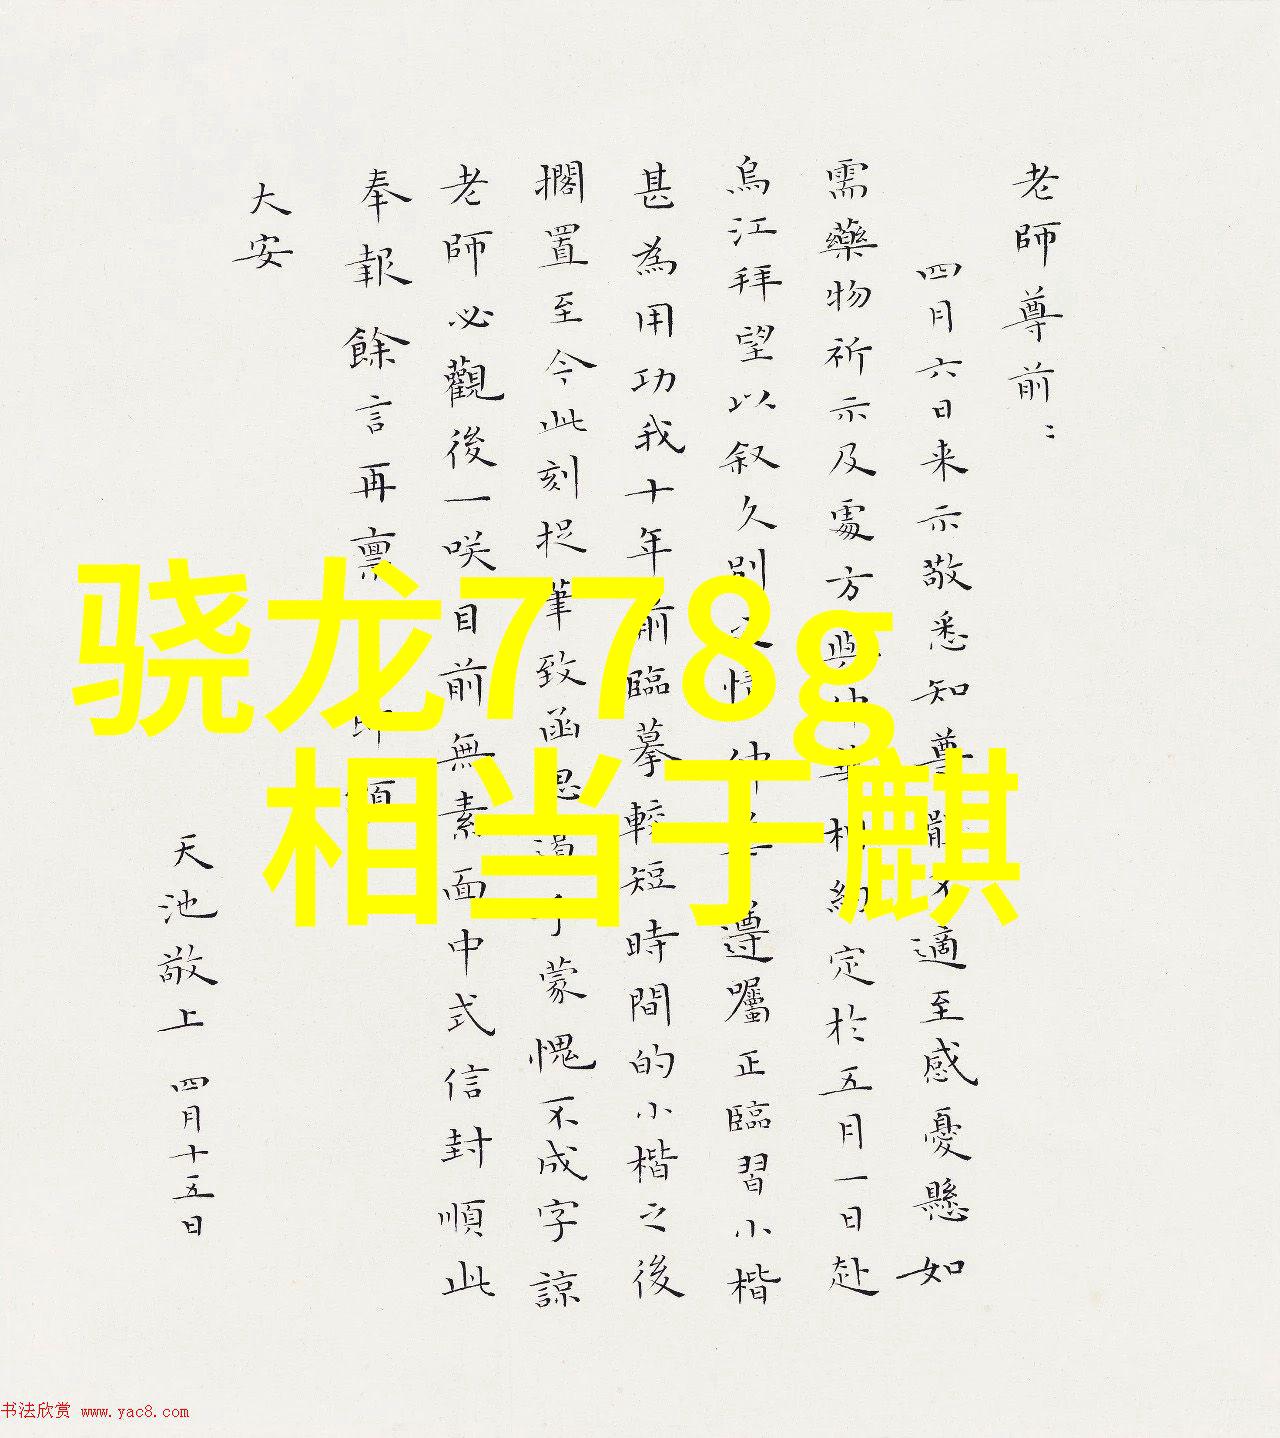 老師尊前：
四月六日来示敬悉知尊體不適至感憂懸如
需藥物祈示及處方與仲華相約定於五月一日赴
烏江拜望以叙久別之情仲華遵囑正臨習小楷
甚為用功我十年前臨摹較短時間的小楷之後
擱置至今此刻捉筆致函思遏手蒙愧不成字諒
老師必觀後一咲目前無素面中式信封順此
奉報餘言再禀即頌
大安
天池敬上 四月十五日
骁龙778g
相当于麒
书法欣赏 www.yac8.com